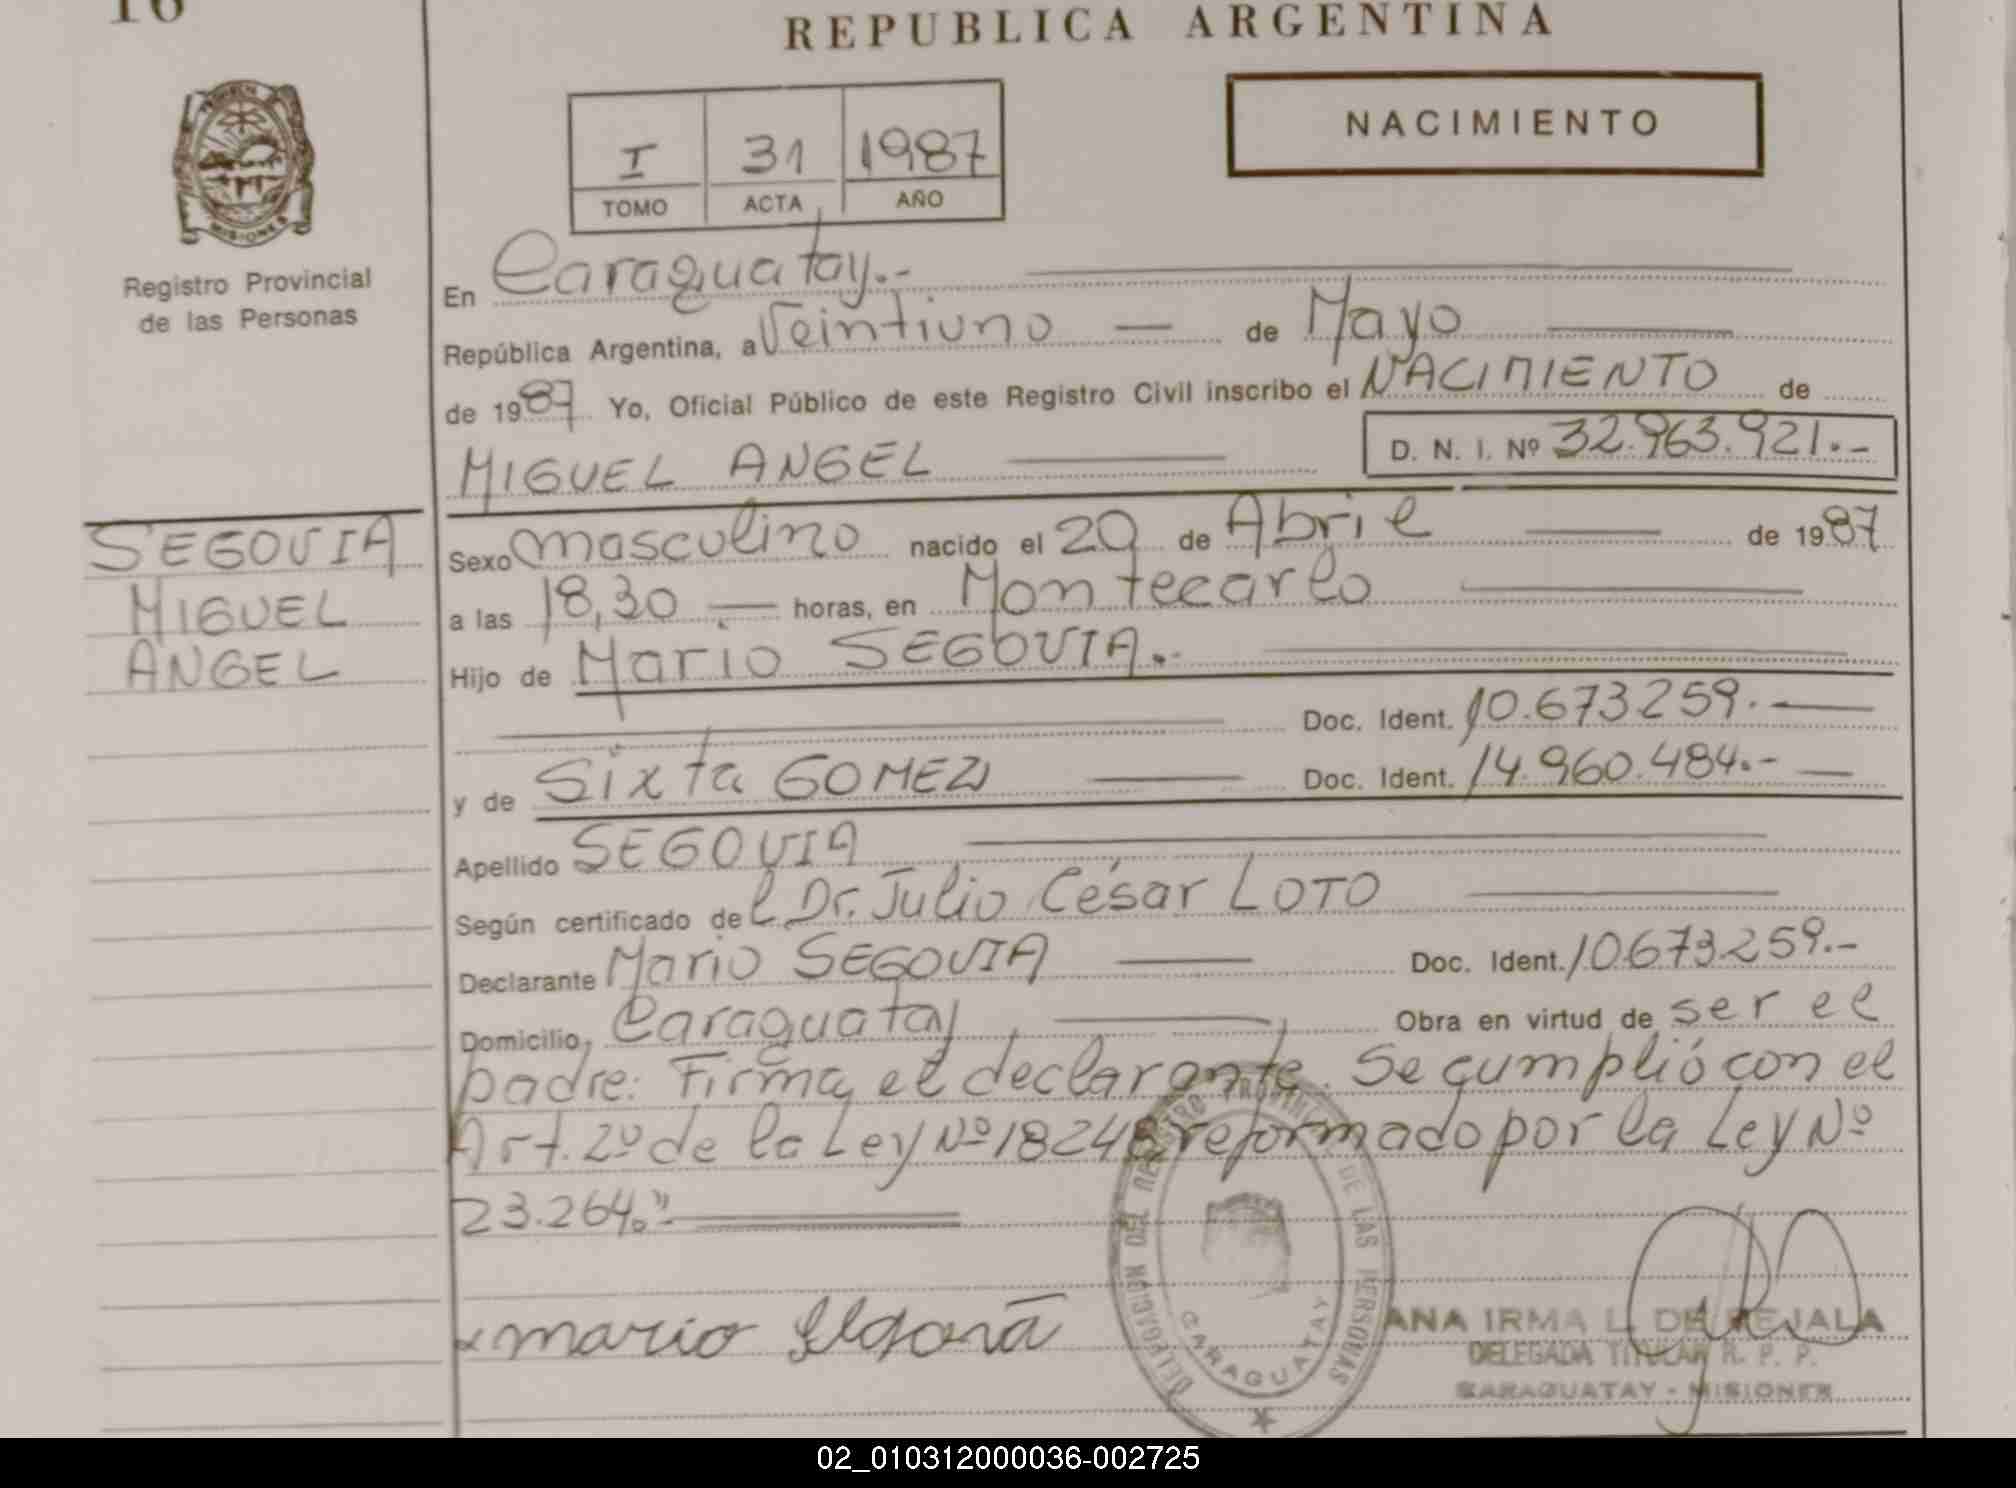 16
REPUBLICA ARGENTINA
MISIONES
Registro Provincial
de las Personas
I 31 1987
TOMO ACTA AÑO
NACIMIENTO
En Caraguatay.-
República Argentina, a Veintiuno — de Mayo
de 1987 Yo, Oficial Público de este Registro Civil inscribo el NACIMIENTO de
MIGUEL ANGEL D. N. I. Nº 32.963.921.-
SEGOVIA
MIGUEL
ANGEL
Sexo masculino nacido el 20 de Abril de 1987
a las 18,30 — horas, en Montecarlo
Hijo de Mario SEGOVIA.-
Doc. Ident. 10.673259.-
y de Sixta GOMEZ Doc. Ident. 14.960.484.-
Apellido SEGOVIA
Según certificado del Dr. Julio César LOTO
Declarante Mario SEGOVIA Doc. Ident. 10673.259.-
Domicilio, Caraguatay Obra en virtud de ser el
padre: Firma el declarante. Se cumplió con el
Art. 2º de la Ley Nº 18248 reformado por la Ley Nº
23.264."-
mario Segovia
DELEGACION DEL REGISTRO PROVINCIAL DE LAS PERSONAS
CARAGUATAY
ANA IRMA L. DE REJALA
DELEGADA TITULAR R. P. P.
CARAGUATAY - MISIONES
02_010312000036-002725